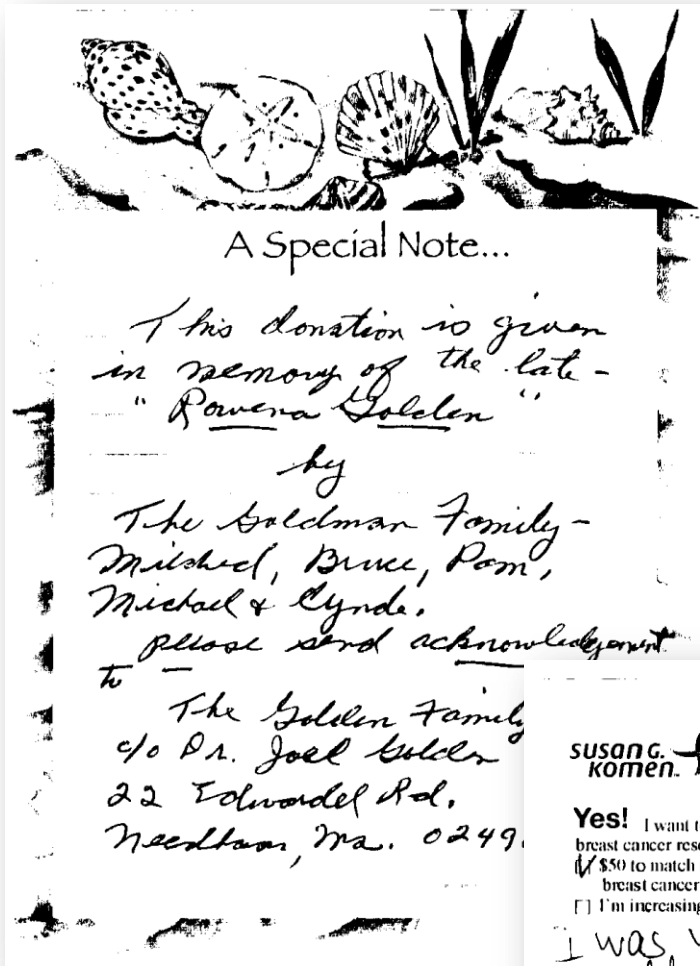 A Special Note...
This donation is given
in memory of the late -
" Rowena Golden "
by
The Goldman Family -
Mildred, Bruce, Pam,
Michael & Cynde.
please send acknowledgement
to -
The Golden Family
c/o Dr. Joel Golden
22 Rd.
Needham, Ma. 0249
susan G.
komen.
Yes! I want
breast cancer
$50 to match
breast cancer
I'm increasing
I was